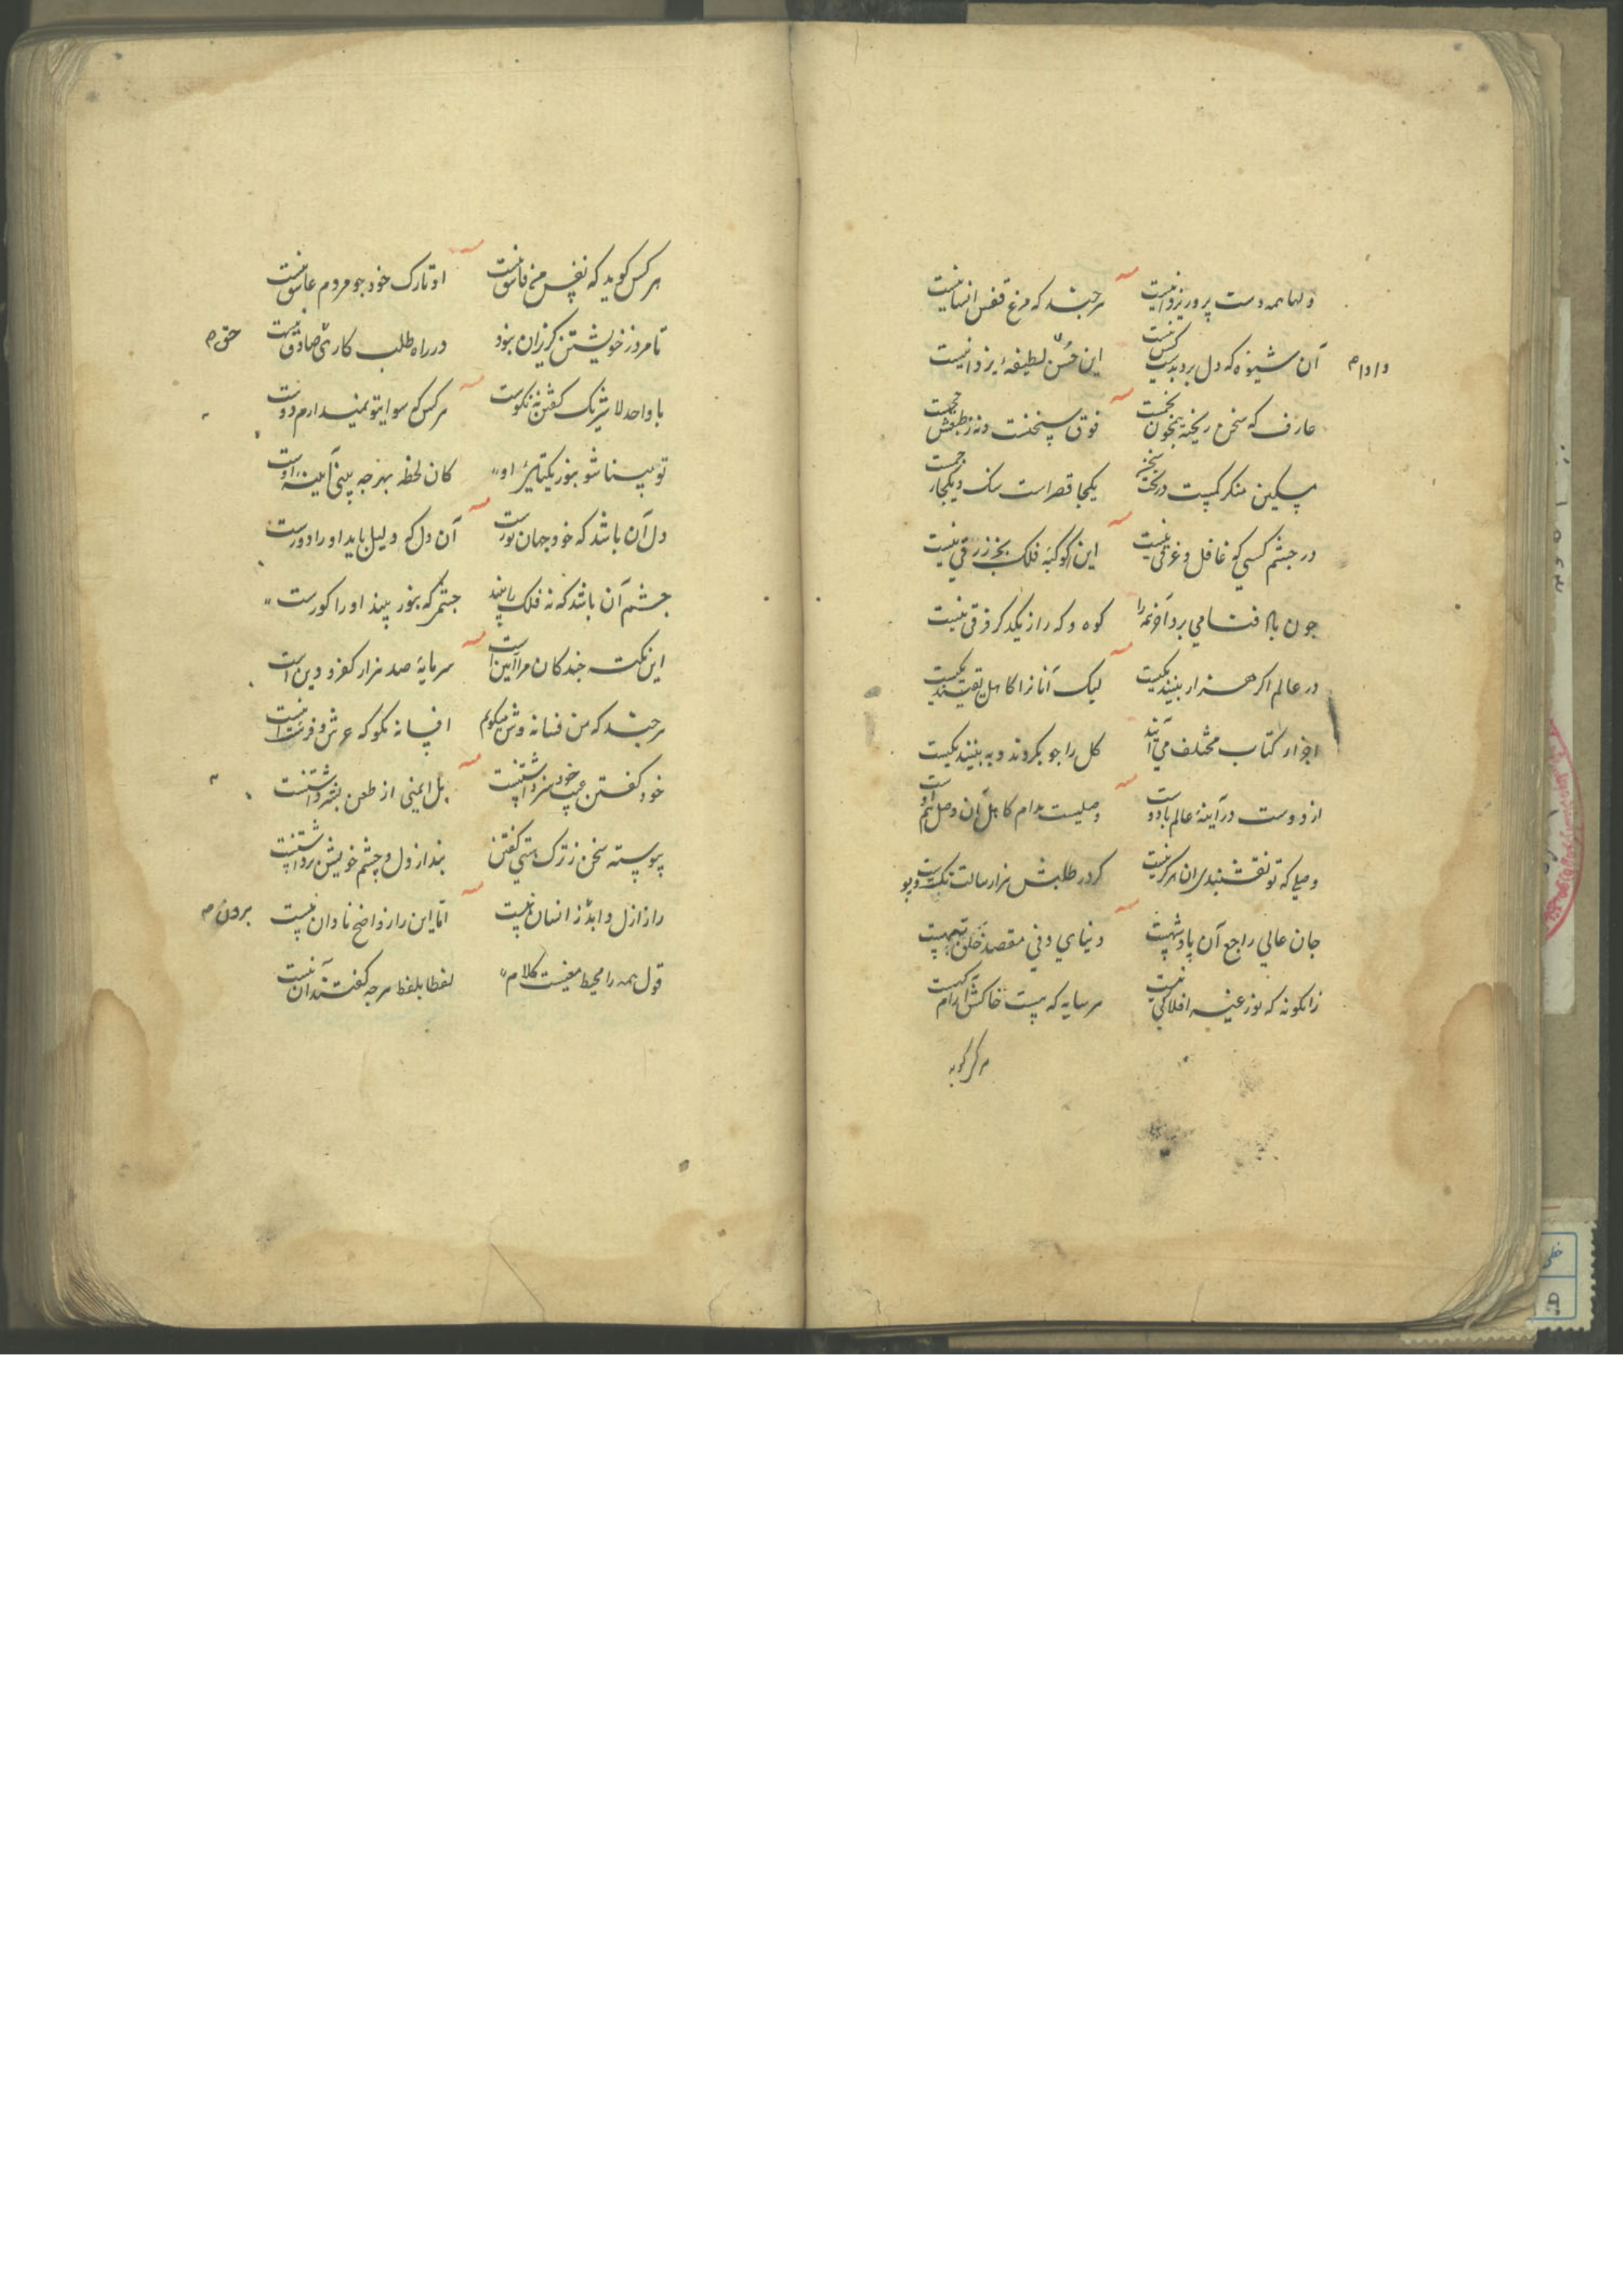 دلها همه دست پرور یزدانیست هرچند که مرغ قفس انسانیست
آن شیوه که دل برد بدست کس نیست این حسن لطیفهٔ یزدانیست
داد ام
عارف که سخن ریخته
مسکین منکر یکجا قصر است سنگ و یکجا
در چشم کسی کو غافل و غرقی نیست این کوکبهٔ فلک بجز زرقی نیست
چون باد فنا می برد آخر همه را کوه و که را ز یکدگر فرقی نیست
در عالم اگر هزار بینند یکیست لیک آنانرا که اهل یقینند یکیست
اجزاء کتاب مختلف می آیند کل را چو بگروند و به بینند یکیست
از دوست در آینهٔ عالم با دوست وصلیست مدام کاهل آن وصل هم اوست
وصلی که تو نقش بندی آن هرگز نیست گر در طلبش هزار سالت تک و پوست
جان عالی راجع آن پادشهیست دنیای دنی مقصد خلق تبهیست
زانگونه که نور عنصر افلاکی نیست هر سایه که هست خاکش آرامگهیست
هرکس گوید
هرکس گوید که نفس من فاسق نیست او تارک خود چو مردم عاشق نیست
تا مرد ز خویشتن گریزان نبود در راه طلب کار وی صادق نیست
حق ام
با واحد لا شریک گفتن نه نکوست هرکس که سوای تو نمیدارم دوست
تو بینا شو بنور یکتائی او کان لحظه بهرچه بینی آیینهٔ اوست
دل آن باشد که خود جهان نورست آن دل که دلیل باید او را دورست
چشم آن باشد که نه فلک را بیند چشمی که بنور بیند او را کورست
این نکته چند کان مرا آیین است سرمایهٔ صد هزار کفر و دین است
هرچند که من فسانه وش میگویم افسانه مگو که عرش و فرش است
خود گفتن عیب خود سپر داشتنست بل ایمنی از طعن بشر داشتنست
پیوسته سخن ز ترک هستی گفتن بند از دل و چشم خویش برداشتنست
راز ازل و ابد ز انسان نیست اما این راز واضح نادان نیست
برون ام
قول همه را محیط معنیست کلام لفظا بلفظ هرچه گفتند آن نیست